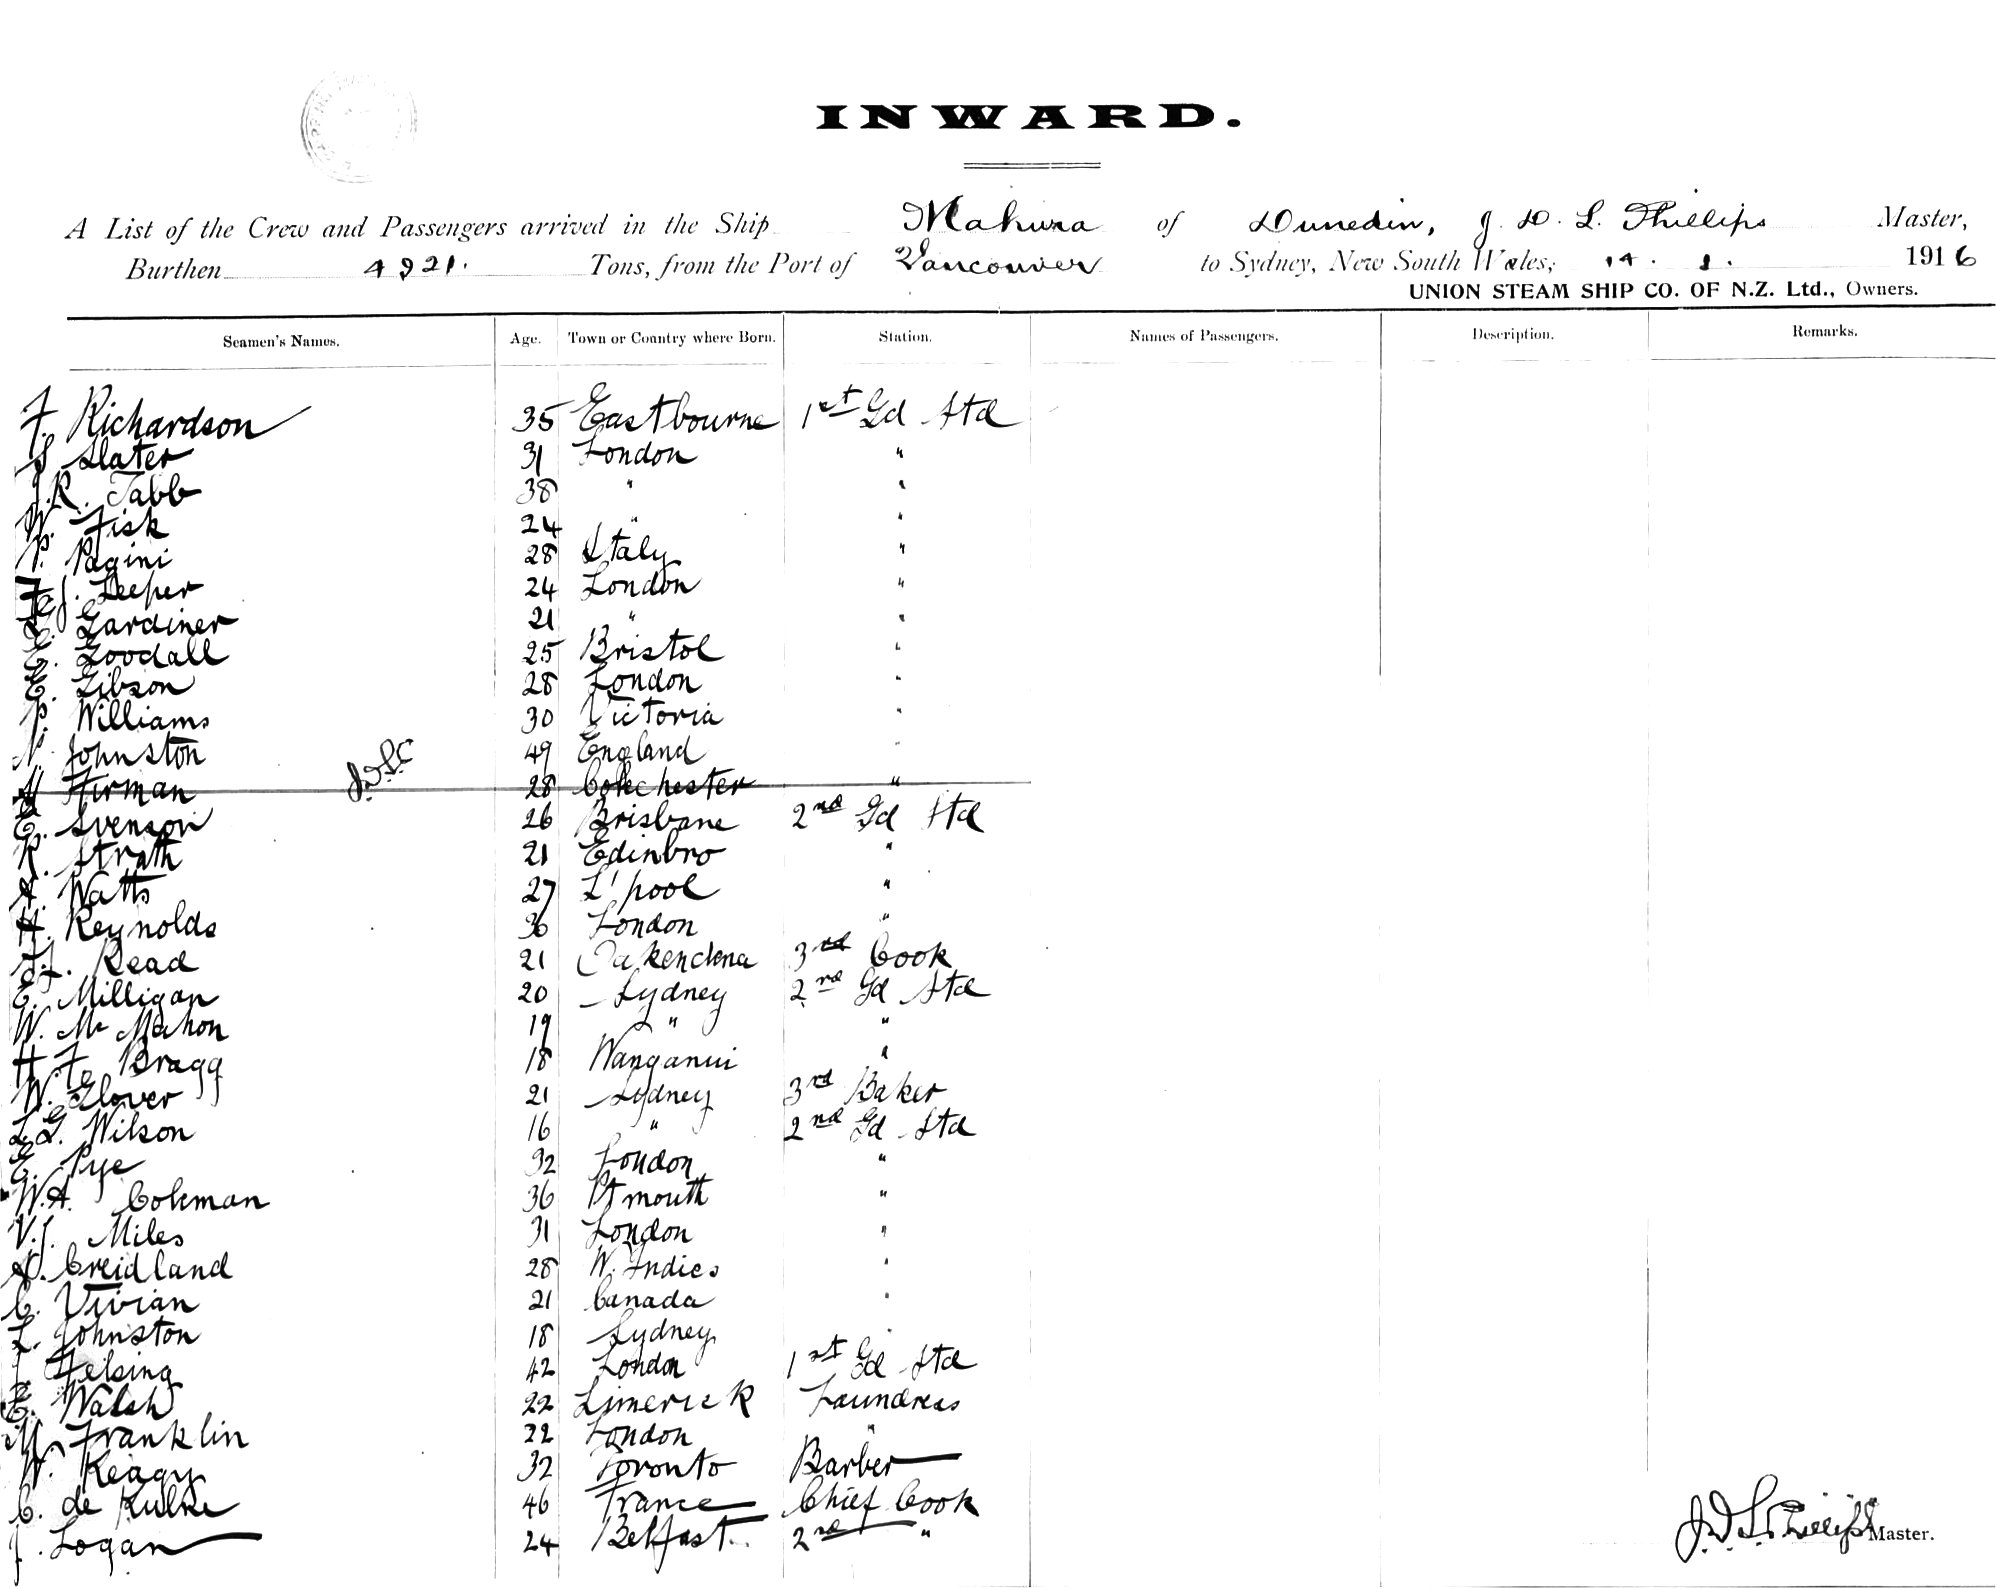 INWARD.
A List of the Crew and Passengers arrived in the Ship Makura of Dunedin, J. D. L. Phillips Master,
Burthen 4921. Tons, from the Port of Vancouver to Sydney, New South Wales, 14. 1. 1916
UNION STEAM SHIP CO. OF N.Z. Ltd., Owners.
Seamen's Names. Age. Town or Country where Born. Station. Names of Passengers. Description. Remarks.
F. Richardson 35 Eastbourne 1st Gd Std
S Slater 31 London "
J.R. Tabb 38 " "
W. Fisk 24 " "
P. Pagini 28 Italy "
F.J. Leeper 24 London "
Gardiner 21 " "
E. Goodall 25 Bristol "
E. Gibson 28 London "
P. Williams 30 Victoria "
N. Johnston 49 England "
Firman 28 Colchester "
E. Svenson 26 Brisbane 2nd Gd Std
R. Strath 21 Edinbro "
A. Watts 27 L'pool "
H. Reynolds 30 London "
Read 21 3rd Cook
E. Milligan 20 Sydney 2nd Gd Std
W. Mc Mahon 19 " "
H. F. Bragg 18 Wanganui "
W. Glover 21 Sydney 3rd Baker
L.G. Wilson 16 " 2nd Gd Std
E. Pye 32 London "
W.A. Coleman 36 Ptmouth "
V.J. Miles 31 London "
Creidland 28 W. Indies "
C. Vivian 21 Canada "
L. Johnston 18 Sydney "
J Helsing 42 London 1st Gd Std
E. Walsh 22 Limerick Laundress
M. Franklin 22 London "
W. Keagy 32 Toronto Barber
C. de Kulke 46 France Chief Cook
J. Logan 24 Belfast 2nd "
J. D. L. Phillips Master.